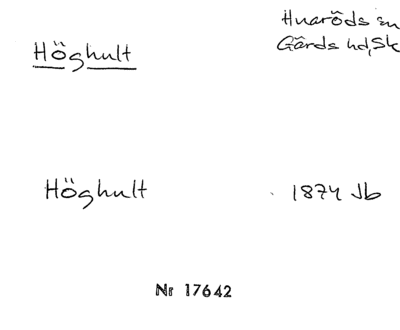 Höghult
Huaröds sn
Gärds hd, Sk
Höghult
1874 Jb
Nr 17642